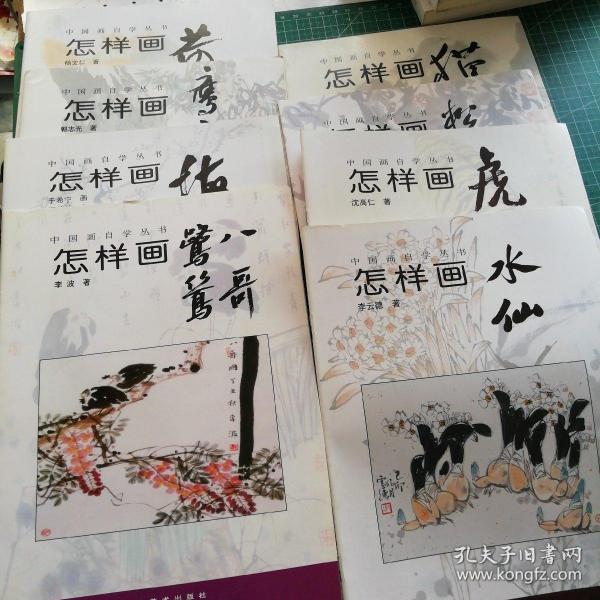 中国画自学丛书
怎样画
杨文仁 著
中国画自学丛书
怎样画
郭志光 著
中国画自学丛书
怎样画
于希宁 画
中国画自学丛书
怎样画 八哥
鹭鸶
李波 著
中国画自学丛书
怎样画 猫
中国画自学丛书
怎样画 松
中国画自学丛书
怎样画 虎
沈高仁 著
中国画自学丛书
怎样画 水仙
李云德 著
美术出版社
孔夫子旧书网
www.kongfz.com